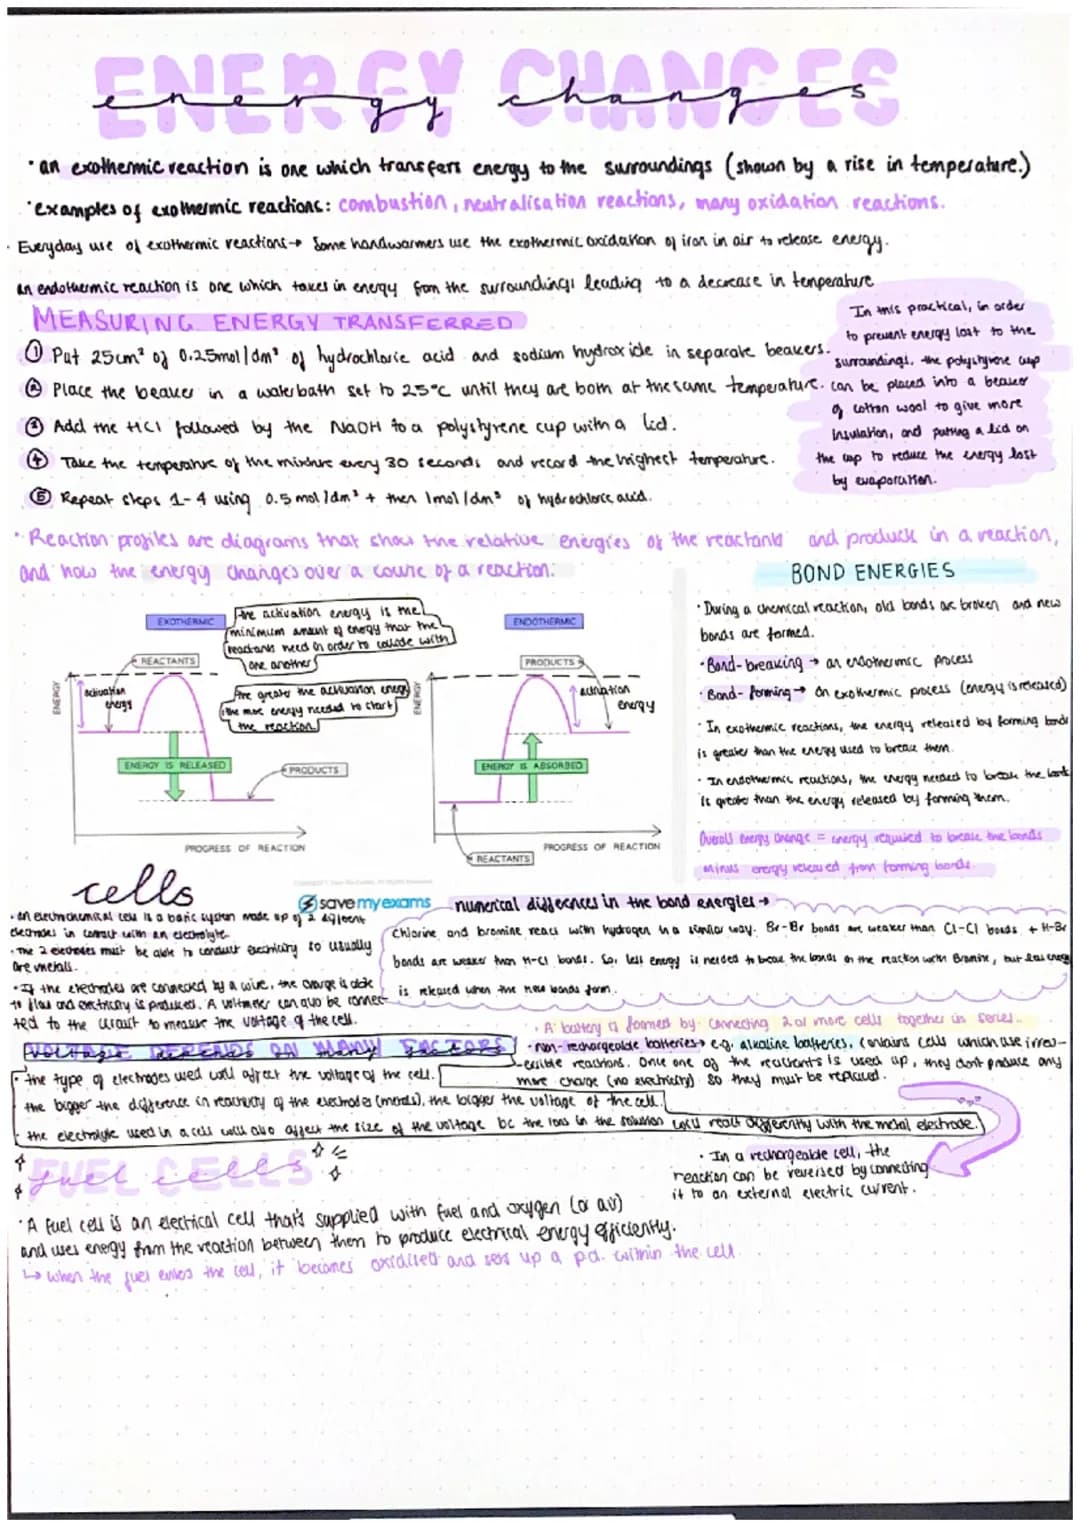 ENERGY CHANGES
energy changes
· an exothermic reaction is one which transfers energy to the surroundings (shown by a rise in temperature.)
· examples of exothermic reactions: combustion, neutralisation reactions, many oxidation reactions.
· Everyday use of exothermic reactions → Some handwarmers use the exothermic oxidation of iron in air to release energy.
an endothermic reaction is one which takes in energy from the surroundings leading to a decrease in temperature
MEASURING ENERGY TRANSFERRED
① Put 25cm³ of 0.25mol/dm³ of hydrochloric acid and sodium hydroxide in separate beakers.
② Place the beaker in a waterbath set to 25°C until they are both at the same temperature.
③ Add the HCl followed by the NaOH to a polystyrene cup with a lid.
④ Take the temperature of the mixture every 30 seconds and record the highest temperature.
⑤ Repeat steps 1-4 using 0.5 mol/dm³ + then 1mol/dm³ of hydrochloric acid.
In this practical, in order
to prevent energy lost to the
surroundings, the polystyrene cup
can be placed into a beaker
of cotton wool to give more
insulation, and putting a lid on
the cup to reduce the energy lost
by evaporation.
· Reaction profiles are diagrams that show the relative energies of the reactants and products in a reaction,
and how the energy changes over a course of a reaction.
EXOTHERMIC
the activation energy is the
minimum amount of energy that the
reactants need in order to collide with
one another
the greater the activation energy
the more energy needed to start
the reaction
REACTANTS
ENERGY
activation
energy
ENERGY IS RELEASED
PRODUCTS
PROGRESS OF REACTION
ENDOTHERMIC
PRODUCTS
ENERGY
activation
energy
ENERGY IS ABSORBED
REACTANTS
PROGRESS OF REACTION
savemyexams
BOND ENERGIES
· During a chemical reaction, old bonds are broken and new
bonds are formed.
· Bond-breaking → an endothermic process
· Bond-forming → an exothermic process (energy is released)
· In exothermic reactions, the energy released by forming bonds
is greater than the energy used to break them.
· In endothermic reactions, the energy needed to break the bonds
is greater than the energy released by forming them.
Overall energy change = energy required to break the bonds
minus energy released from forming bonds.
cells
· an electrochemical cell is a basic system made up of 2 different
electrodes in contact with an electrolyte.
· The 2 electrodes must be able to conduct electricity so usually
are metals.
· If the electrodes are connected by a wire, the charge is able
to flow and electricity is produced. A voltmeter can also be connec-
ted to the circuit to measure the voltage of the cell.
numerical differences in the bond energies →
Chlorine and bromine react with hydrogen in a similar way. Br-Br bonds are weaker than Cl-Cl bonds + H-Br
bonds are weaker than H-Cl bonds. So, less energy is needed to break the bonds in the reaction with Bromine, but less energy
is released when the new bonds form.
· A battery is formed by connecting 2 or more cells together in series.
· non-rechargeable batteries → e.g. alkaline batteries, contains cells which use irrev-
-ersible reactions. Once one of the reactants is used up, they don't produce any
more charge (no electricity) so they must be replaced.
VOLTAGE DEPENDS ON MANY FACTORS
· the type of electrodes used will affect the voltage of the cell.
the bigger the difference in reactivity of the electrodes (metals), the bigger the voltage of the cell.
· the electrolyte used in a cell will also affect the size of the voltage bc the ions in the solution will react differently with the metal electrode.
· In a rechargeable cell, the
reaction can be reversed by connecting
it to an external electric current.
FUEL CELLS
fuel cells
· A fuel cell is an electrical cell that's supplied with fuel and oxygen (or air)
and uses energy from the reaction between them to produce electrical energy efficiently.
↳ when the fuel enters the cell, it becomes oxidised and sets up a p.d. within the cell.